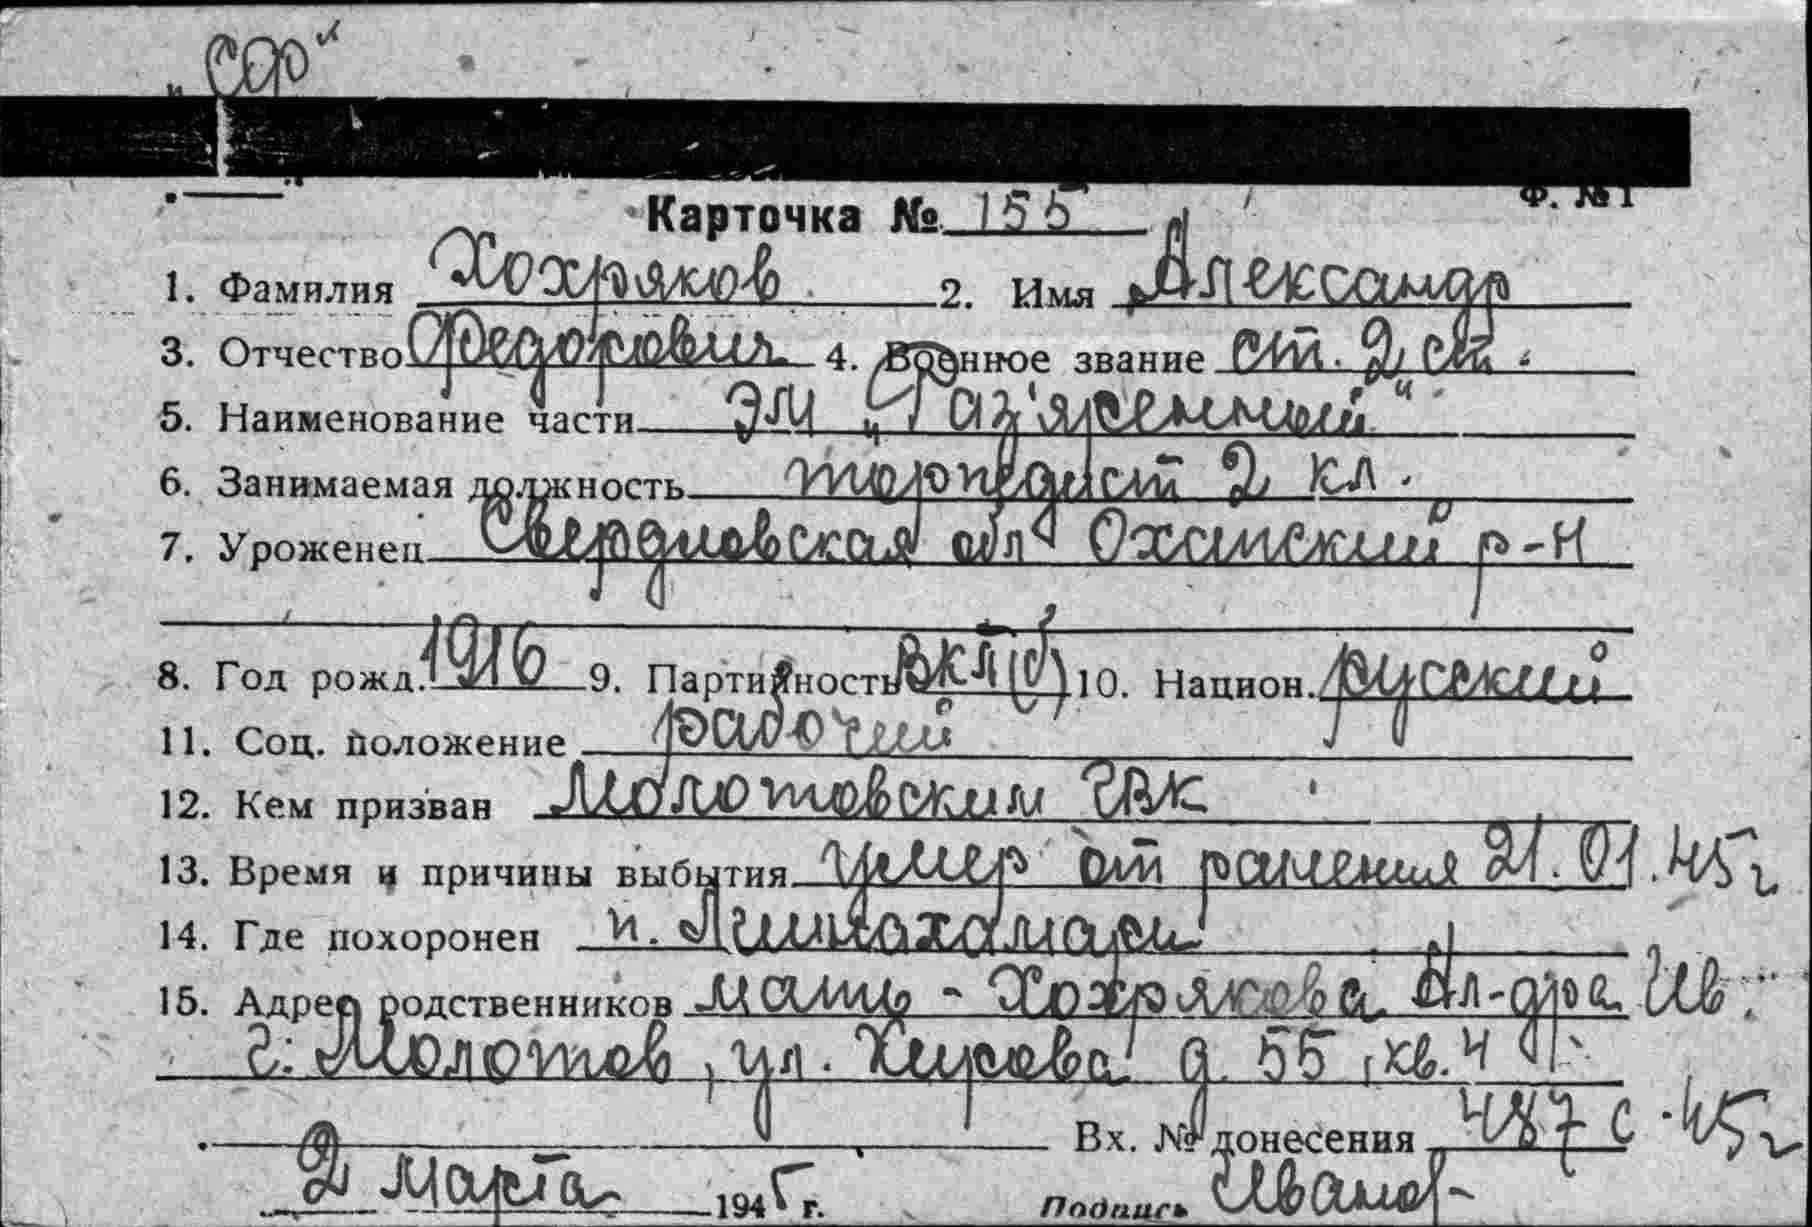 „СФ"
Ф. № 1
Карточка № 155
1. Фамилия Хохряков 2. Имя Александр
3. Отчество Федорович 4. Военное звание ст. 2 ст.
5. Наименование части ЭМ „Раз'яренный"
6. Занимаемая должность торпедист 2 кл.
7. Уроженец Свердловская обл Оханский р-н
8. Год рожд. 1916 9. Партийность ВКП(б) 10. Национ. русский
11. Соц. положение рабочий
12. Кем призван Молотовским ГВК
13. Время и причины выбытия умер от ранения 21.01.45г
14. Где похоронен п. Лиинахамари
15. Адрес родственников мать - Хохрякова Ал-дра Ив.
г. Молотов, ул. Кирова д. 55, кв. 4
Вх. № донесения 487 с .45г
2 марта 1945 г. Подпись Иванов